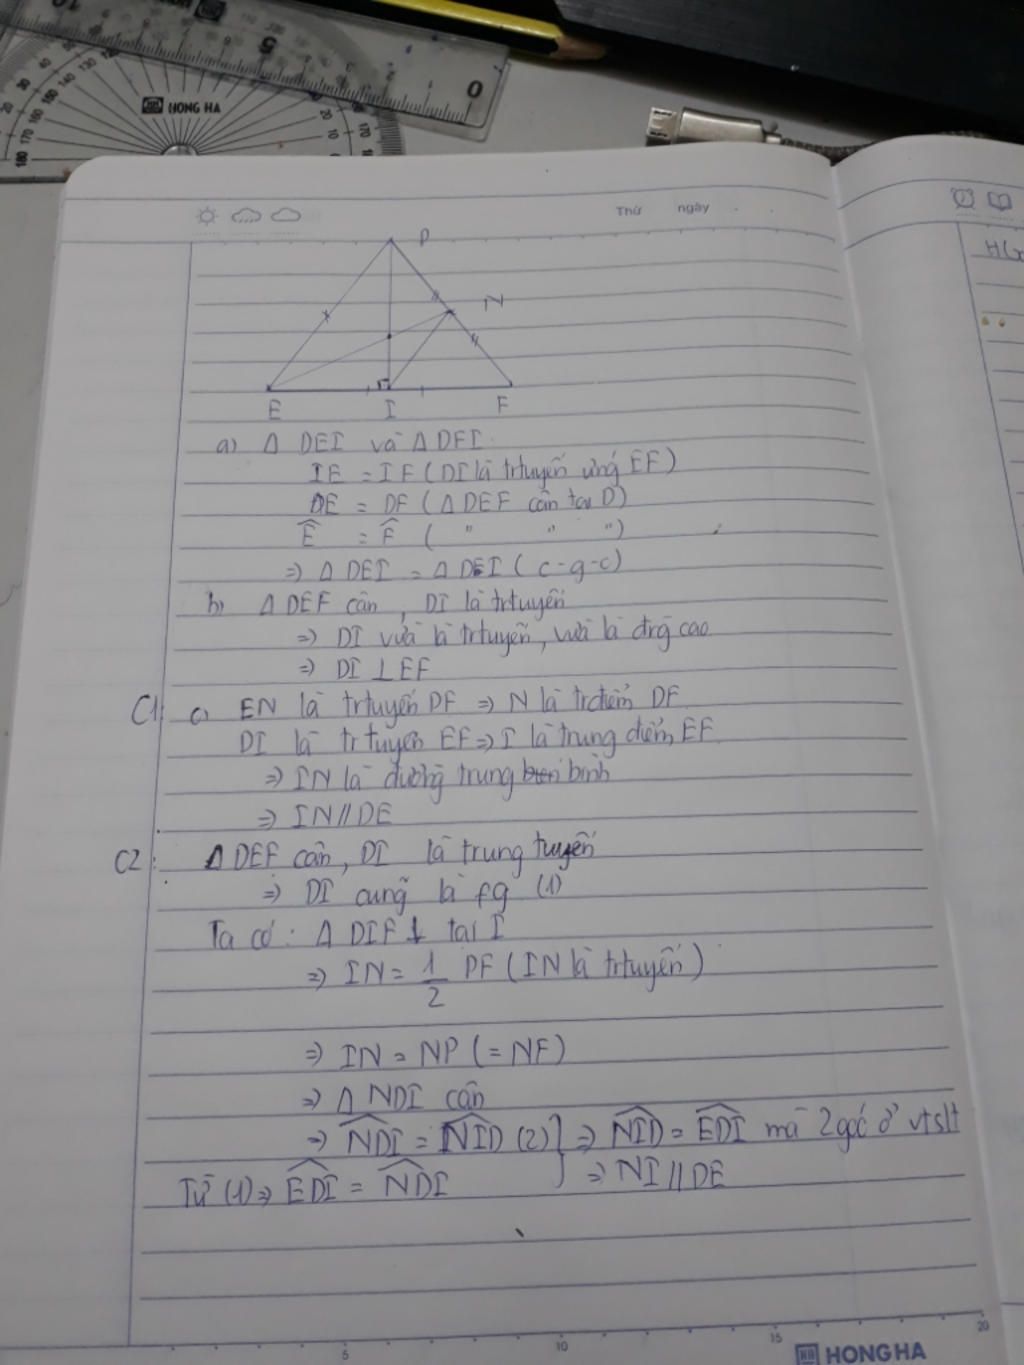 HONG HA
5
0
Thứ ngày
D
N
E I F
a) Δ DEI và Δ DFI.
IE = IF (DI là trtuyến ứng EF)
DE = DF (Δ DEF cân tại D)
Ê = F̂ ( " " ")
=> Δ DEI = Δ DFI (c-g-c)
b) Δ DEF cân, DI là trtuyến
=> DI vừa là trtuyến, vừa là đrg cao
=> DI ⊥ EF
C1: c) EN là trtuyến DF => N là trđiểm DF
DI là trtuyến EF => I là trung điểm EF
=> IN là đường trung bình
=> IN // DE
C2: Δ DEF cân, DI là trung tuyến
=> DI cũng là fg (1)
Ta có: Δ DIF ⊥ tại I
=> IN = 1/2 DF (IN là trtuyến)
=> IN = ND (= NF)
=> Δ NDI cân
=> NDI = NID (2) } => NID = EDI mà 2 góc ở vt slt
Từ (1) => EDI = NDI } => NI // DE
5 10 15 20
HONG HA